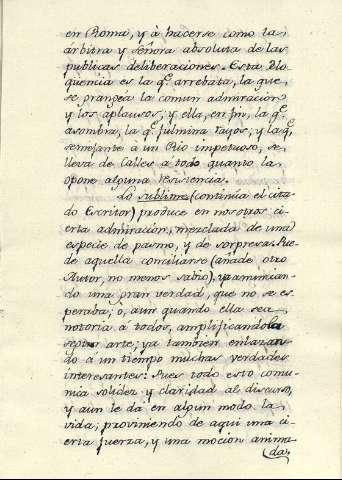 en Roma, y à hacerse como la
árbitra y Señora absoluta de las
publicas deliberaciones. Esta Elo-
qüencia es la q.e arrebata, la que
se grangea la comun admiracion
y los aplausos, y ella, en fin, la q.e
asombra, la q.e fulmina rayos, y la q.e
semejante à un Rio impetuoso, se
lleva de Calles à todo quanto la
opone alguna resistencia.
Lo sublime (continúa el cita-
do Escritor) produce en nosotros ci-
erta admiracion, mezclada de una
especie de pasmo, y de sorpresa. Pue-
de aquella conciliarse (añade otro
Autor, no menos sabio), ya anuncian-
do una gran verdad, que no se es-
peraba; o, aun quando ella sea
notoria a todos, amplificandola
segun arte; ya tambien enlazan-
do à un tiempo muchas verdades
interesantes: Pues todo esto comu-
nica solidez y claridad al discurso,
y aun le dá en algun modo la
vida; proviniendo de aqui una ci-
erta fuerza, y una mocion anima-
da.